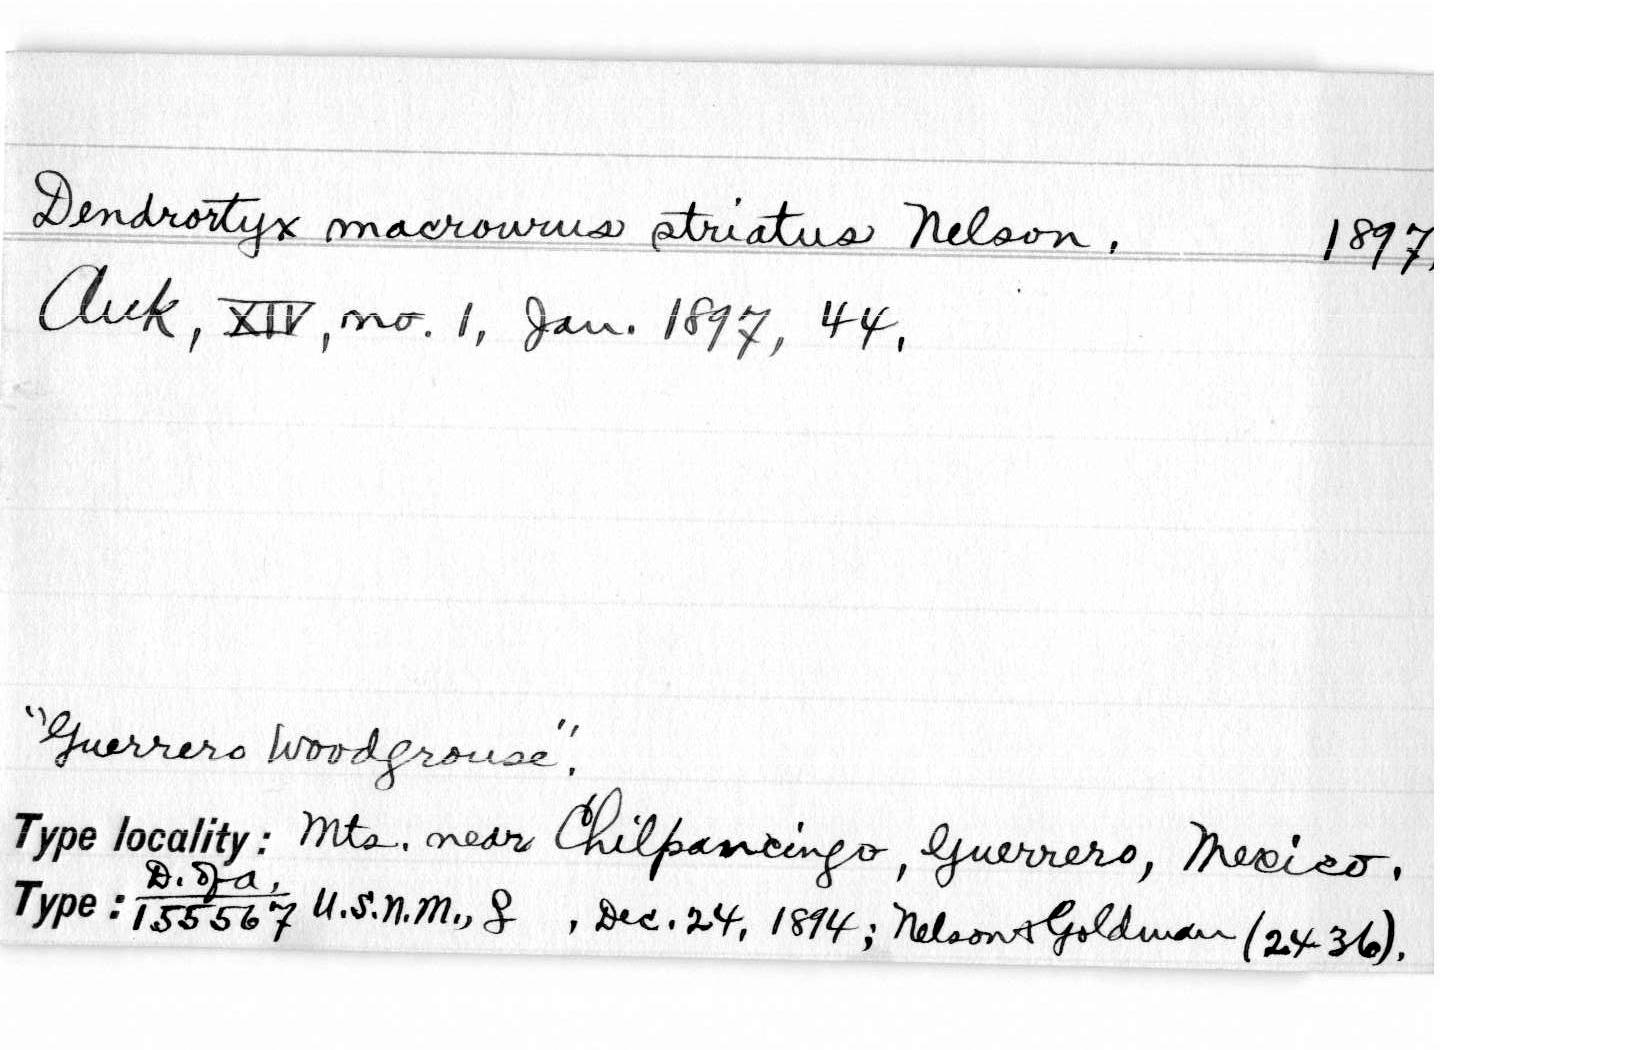 Dendrortyx macrourus striatus Nelson. 1897.
Auk, XIV, no. 1, Jan. 1897, 44.
"Guerrero Woodgrouse".
Type locality: Mts. near Chilpancingo, Guerrero, Mexico.
D. of a.
Type: 155567 U.S.N.M., , Dec. 24, 1894; Nelson & Goldman (2436).